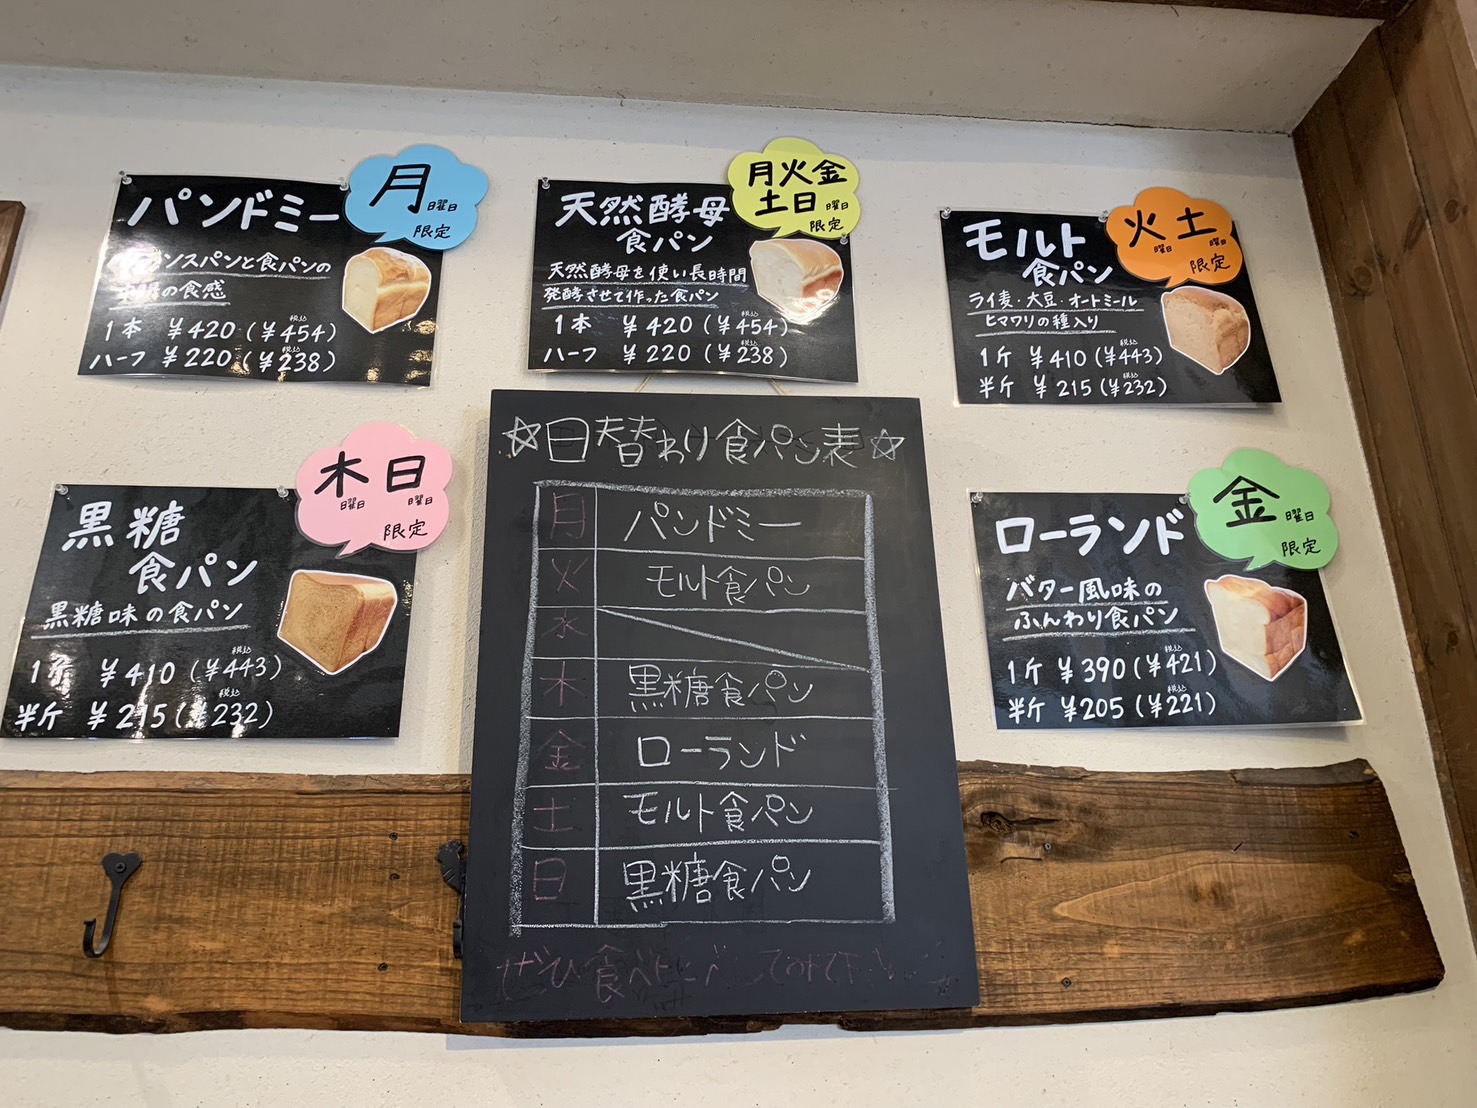 パンドミー
月曜日
限定
ンスパンと食パンの
の食感
1本 ¥420(税込¥454)
ハーフ ¥220(税込¥238)
天然酵母
食パン
月火金
土日曜日
限定
天然酵母を使い長時間
発酵させて作った食パン
1本 ¥420(税込¥454)
ハーフ ¥220(税込¥238)
モルト
食パン
火曜日土曜日
限定
ライ麦・大豆・オートミール
ヒマワリの種入り
1斤 ¥410(税込¥443)
半斤 ¥215(税込¥232)
黒糖
食パン
木曜日日曜日
限定
黒糖味の食パン
1斤 ¥410(税込¥443)
半斤 ¥215(税込¥232)
☆日替わり食パン表☆
月 パンドミー
火 モルト食パン
水
木 黒糖食パン
金 ローランド
土 モルト食パン
日 黒糖食パン
ぜひ食べ
ローランド
金曜日
限定
バター風味の
ふんわり食パン
1斤 ¥390(税込¥421)
半斤 ¥205(税込¥221)